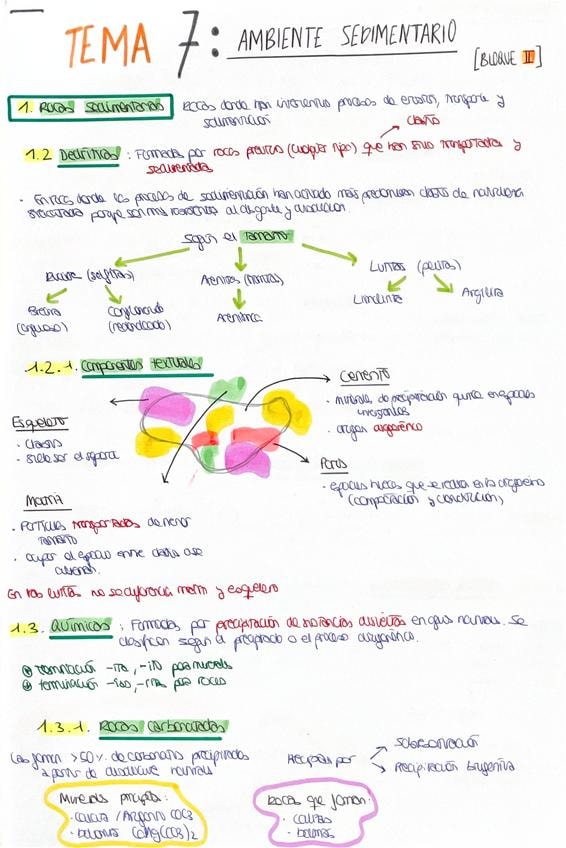 TEMA 7: AMBIENTE SEDIMENTARIO
[BLOQUE II]
1. Rocas sedimentarias Rocas donde han intervenido procesos de erosión, transporte y
sedimentación
clastos
1.2 Detríticas: Formadas por rocas previas (cualquier tipo) que han sido transportadas y
sedimentadas
· En rocas donde los procesos de sedimentación han actuado más predominan clastos de naturaleza
porque son más resistentes al desgaste y disolución.
según el tamaño
(sefitas) Arenitas (samitas) Lutitas (pelitas)
Brecha Conglomerado Arenisca Limolita Argilita
(anguloso) (redondeado)
1.2.1. Componentes texturales
Cemento
· minerales de precipitación química en espacios
· origen diagenético
Esqueleto
· clastos
· suele ser el soporte
Poros
· espacios huecos que se reducen en la diagénesis
(compactación y cementación)
Matriz
· Partículas transportadas de menor
tamaño
· ocupan el espacio entre clastos
En las lutitas no se diferencia matriz y esqueleto
1.3. Químicas: Formadas por precipitación de sustancias disueltas en aguas naturales. Se
clasifican según el precipitado o el proceso diagenético.
terminación -ita, -ito para minerales
terminación para rocas
1.3.1. Rocas carbonatadas
Las forman >50% de carbonatos precipitados
a partir de disoluciones naturales
Precipitan por
Sobresaturación
Precipitación bioquímica
Minerales principales:
· Calcita / Aragonito CaCO3
· Dolomita CaMg(CO3)2
Rocas que forman:
· calizas
· dolomías